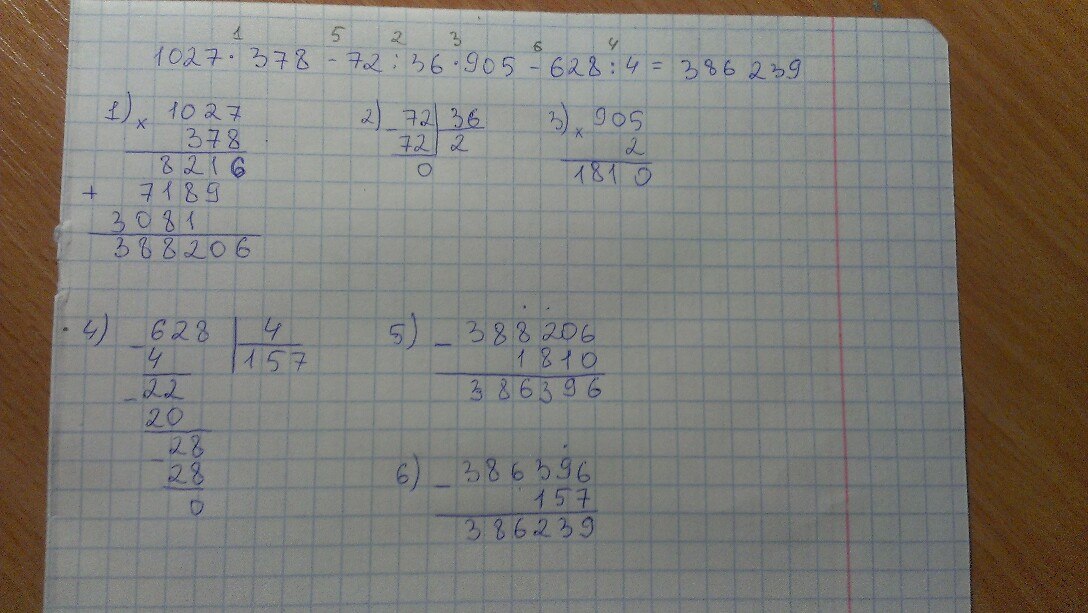 1 5 2 3 6 4
1027 · 378 - 72 : 36 · 905 - 628 : 4 = 386 239
1) × 1027
378
8216
+ 7189
3081
388206
2) - 72 | 36
72 | 2
0
3) × 905
2
1810
4) - 628 | 4
4 | 157
- 22
20
- 28
28
0
5) - 388206
1810
386396
6) - 386396
157
386239